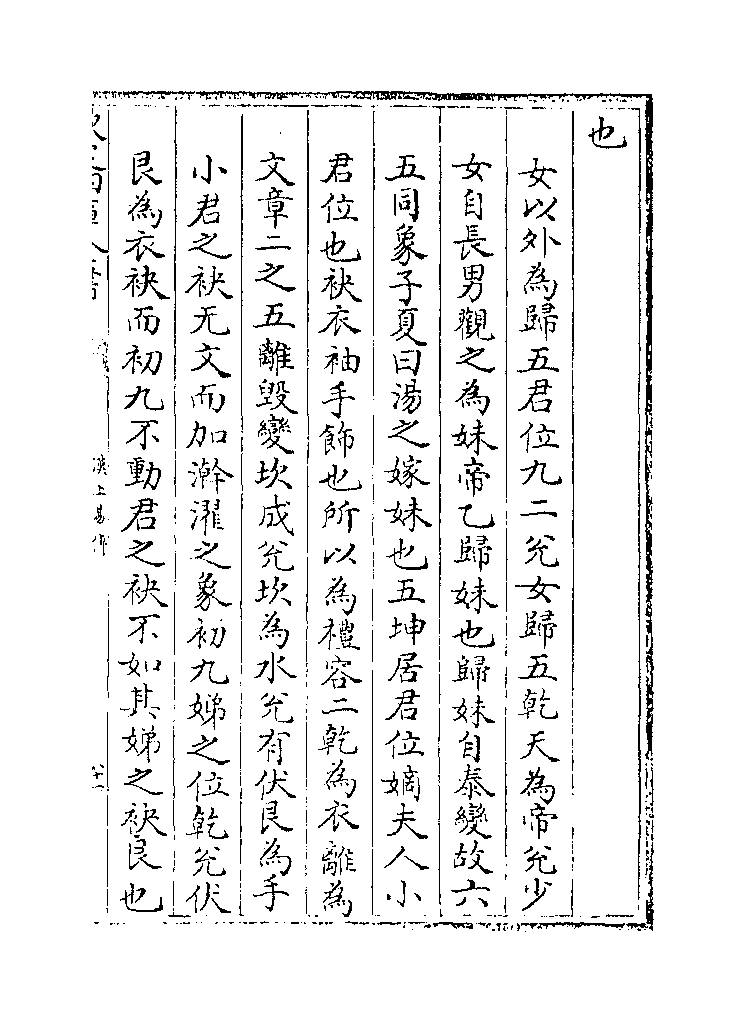 也
女以外為歸五君位九二兊女歸五乾天為帝兊少
女自長男觀之為妹帝乙歸妹也歸妹自泰變故六
五同象子夏曰湯之嫁妹也五坤居君位嫡夫人小
君位也袂衣袖手飾也所以為禮容二乾為衣離為
文章二之五離毀變坎成兊坎為水兊有伏艮為手
小君之袂无文而加澣濯之象初九娣之位乾兊伏
艮為衣袂而初九不動君之袂不如其娣之袂良也
漢上易傳